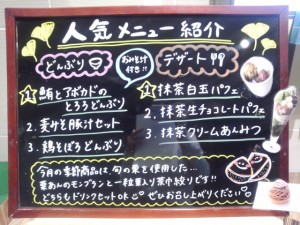 人気メニュー紹介
どんぶり
おみそ汁
付き!!
デザート
1 鮪とアボカドの
とろろどんぶり
2. 麦みそ豚汁セット
3. 鶏そぼろどんぶり
1 抹茶白玉パフェ
2. 抹茶生チョコレートパフェ
3. 抹茶クリームあんみつ
今月の季節商品は、旬の栗を使用した…
栗あんのモンブランと一粒栗入り茶巾絞りです!!
どちらもドリンクセットOK ぜひお召し上がりください